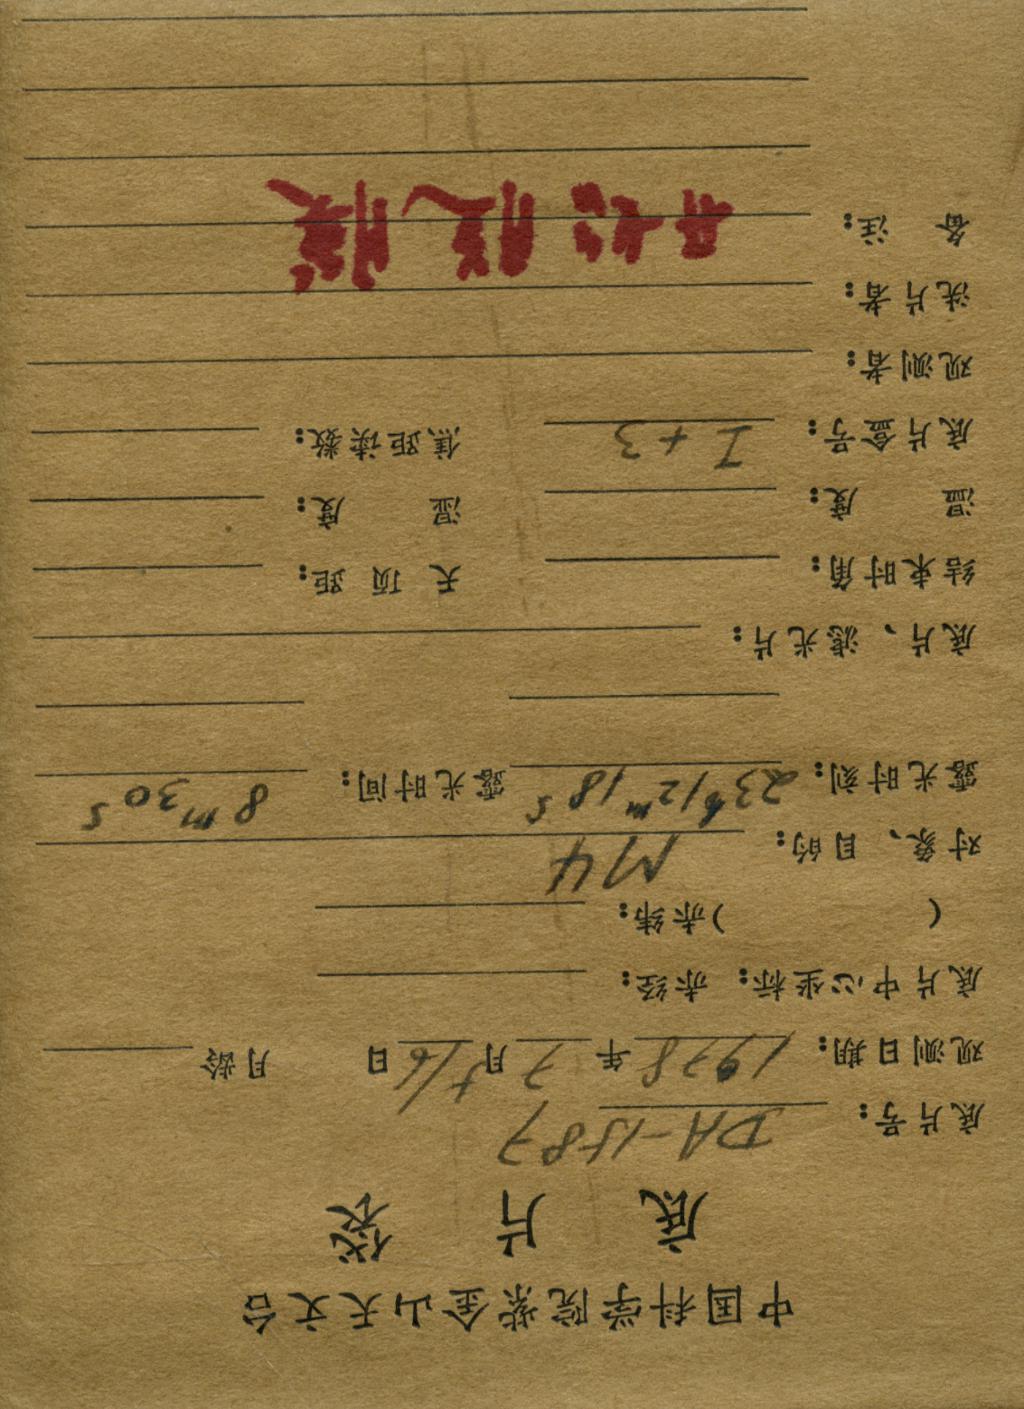 中国科学院紫金山天文台
底片袋
底片号: DA-1587
观测日期: 1978年7月16日 月龄
底片中心坐标: 赤经:
( )赤纬:
对象、目的: M4
露光时刻: 23h12m18s 露光时间: 8m30s
底片、滤光片:
结束时角: 天顶距:
温度: 湿度:
底片盒号: I+3 焦距读数:
观测者:
洗片者:
备注: